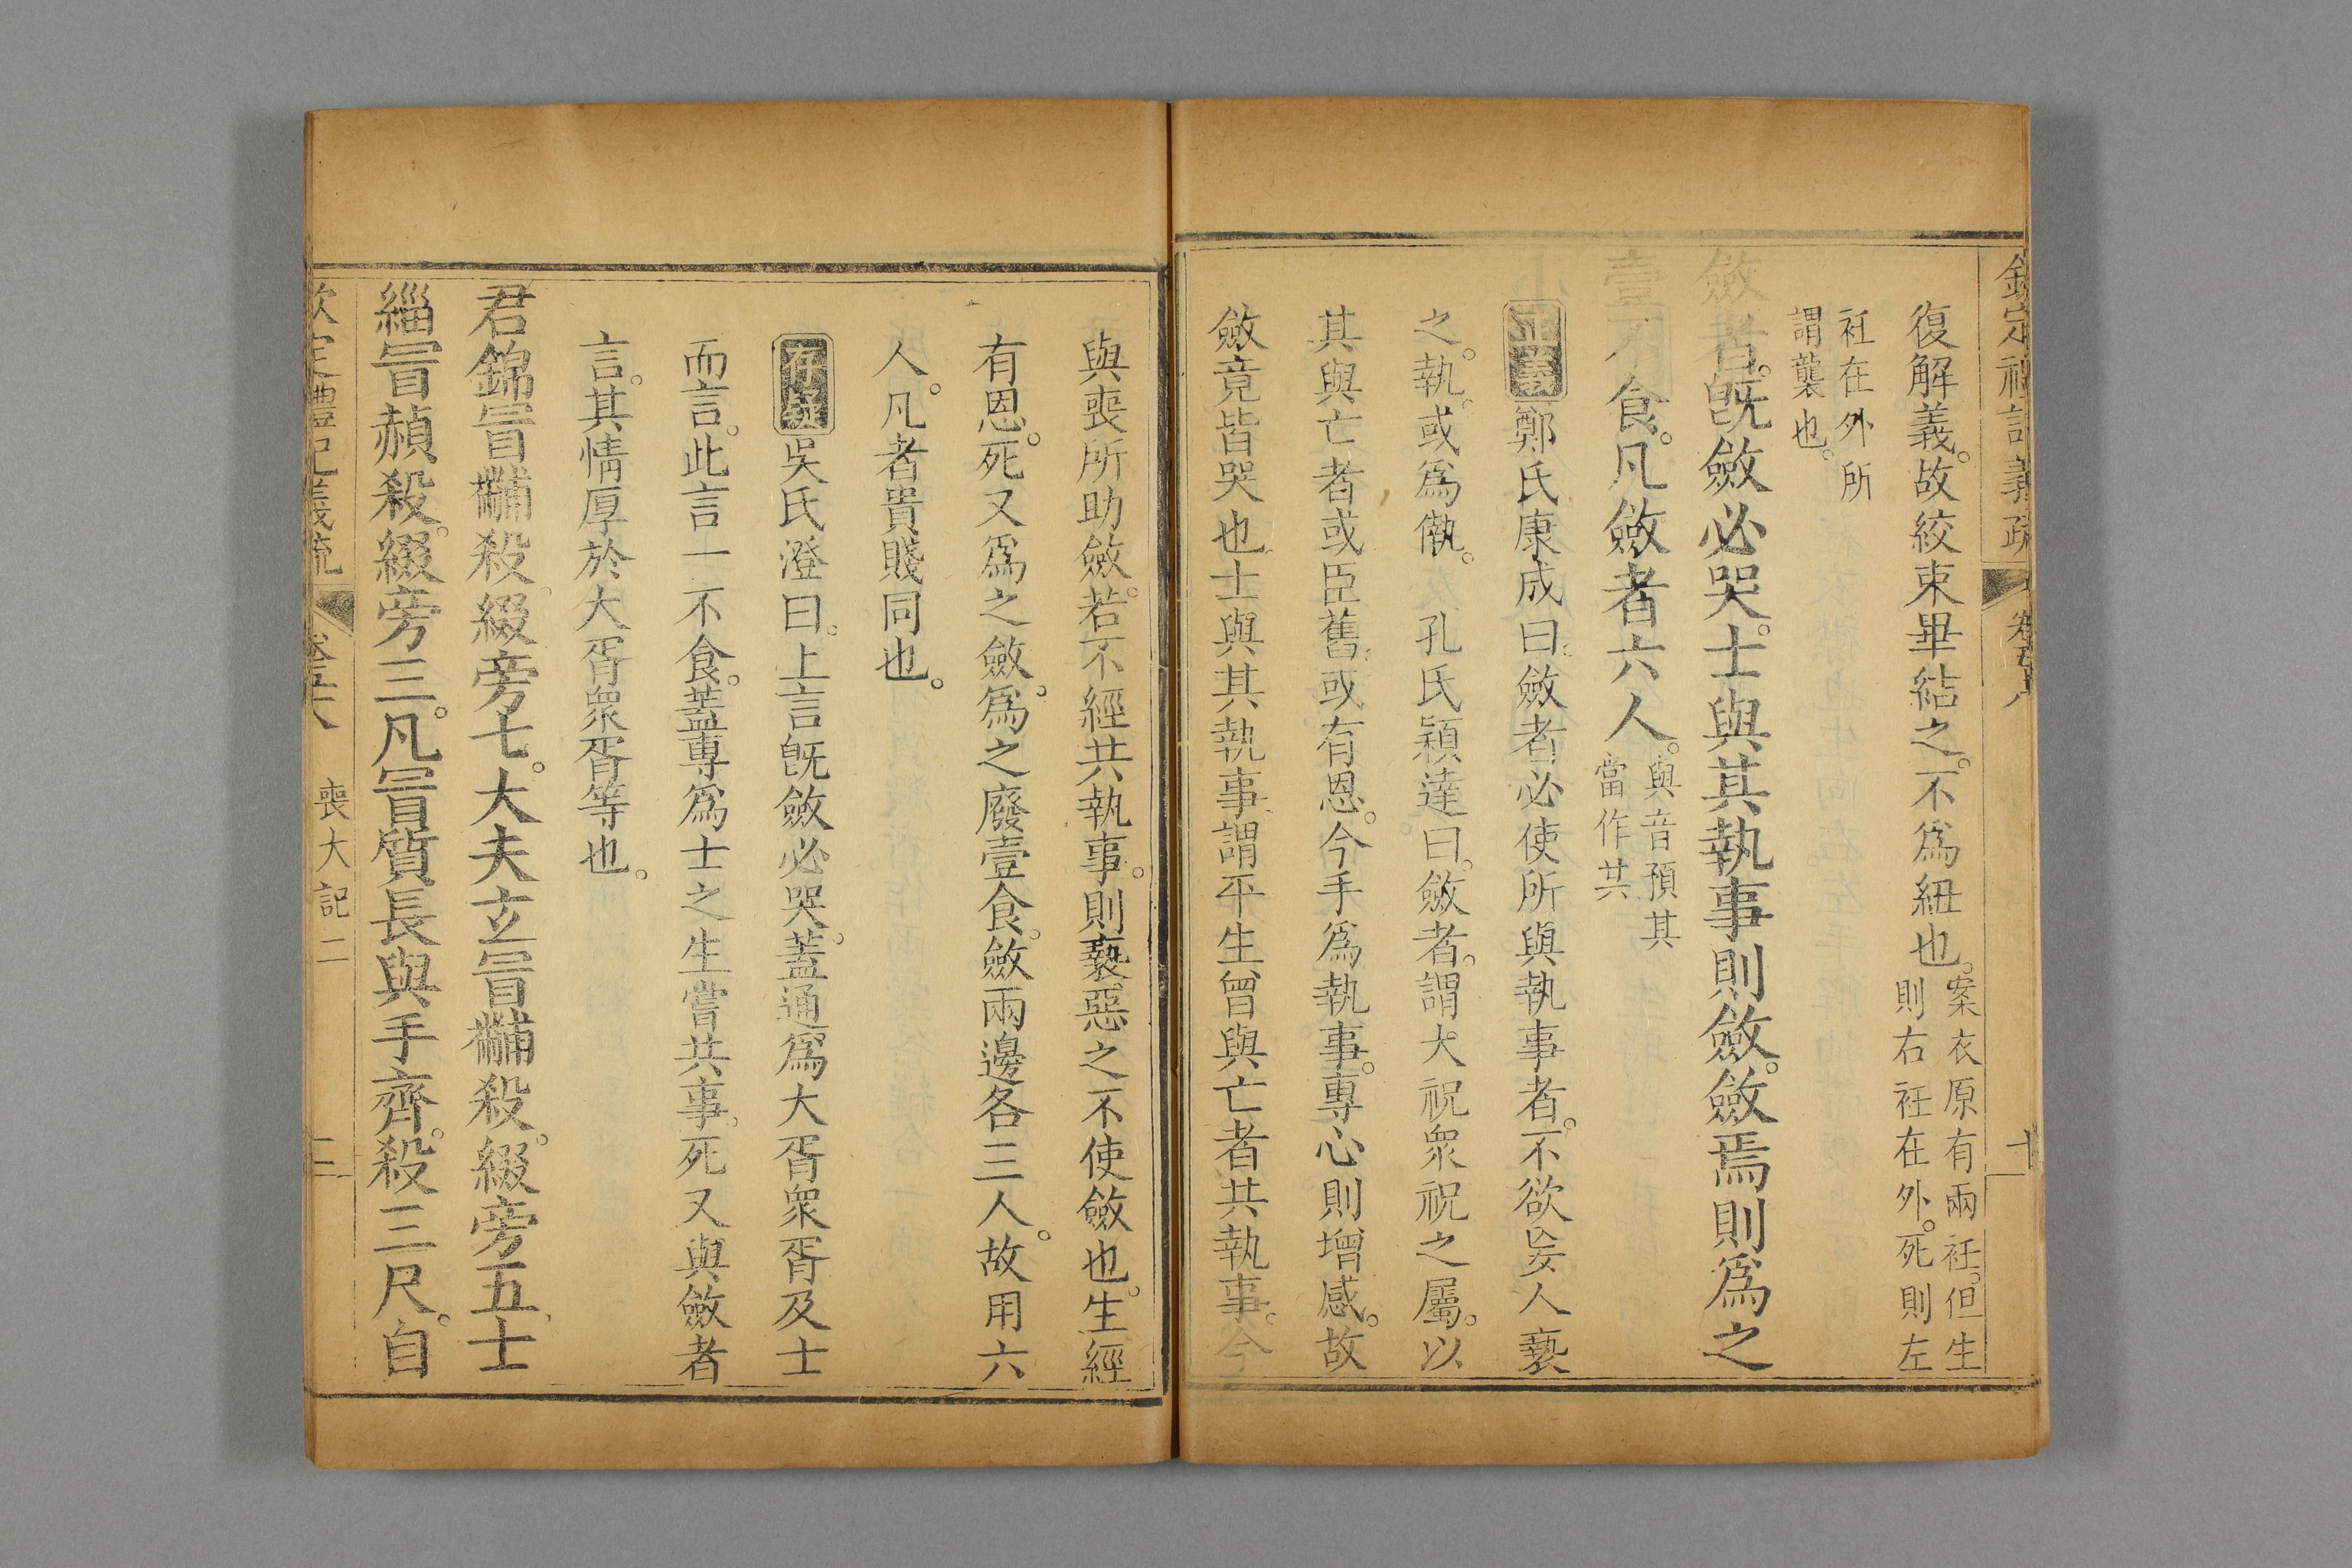 欽定禮記義疏 卷五十八 十
復解義。故絞束畢結之。不爲紐也。案衣原有兩衽。但生
則右衽在外。死則左
衽在外所
謂襲也。
斂者。既斂必哭。士與其執事則斂。斂焉則爲之
壹不食。凡斂者六人。與音預其
當作共
正義鄭氏康成曰。斂者必使所與執事者。不欲妄人褻
之。執。或爲㒀。 孔氏穎達曰。斂者。謂大祝衆祝之屬。以
其與亡者或臣舊。或有恩。今手爲執事。專心則增感。故
斂竟皆哭也。士與其執事謂平生曾與亡者共執事。今
與喪所助斂。若不經共執事。則褻惡之不使斂也。生經
有恩。死又爲之斂。爲之廢壹食。斂兩邊各三人。故用六
人。凡者貴賤同也。
存疑吳氏澄曰。上言既斂必哭。蓋通爲大胥衆胥及士
而言。此言一不食。蓋專爲士之生嘗共事。死又與斂者
言。其情厚於大胥衆胥等也。
君錦冒黼殺。綴旁七。大夫玄冒黼殺。綴旁五。士
緇冒赬殺。綴旁三。凡冒質長與手齊。殺三尺。自
欽定禮記義疏 卷五十八 喪大記二